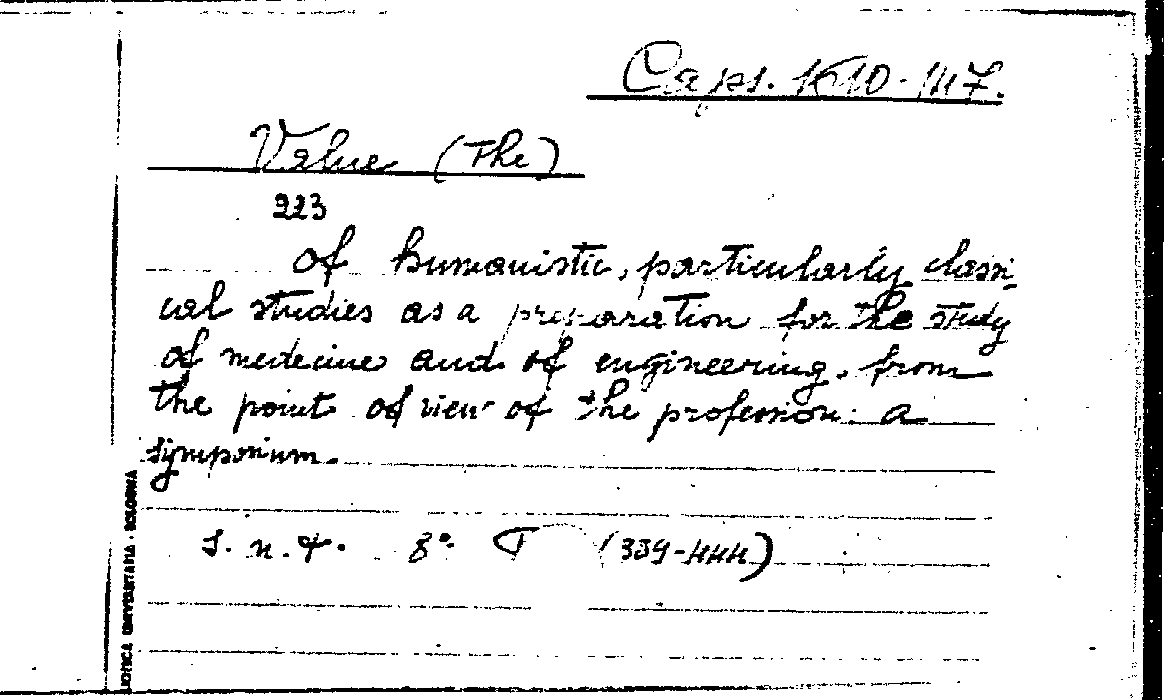 Caps. 1610-147.
Value (The)
223
of humanistic, particularly classi-
cal studies as a preparation for the study
of medecine and of engineering, from
the point of view of the profession: a
symposium.
s. n. t. 8°. (339-444)
BIOTECA UNIVERSITARIA - BOLOGNA